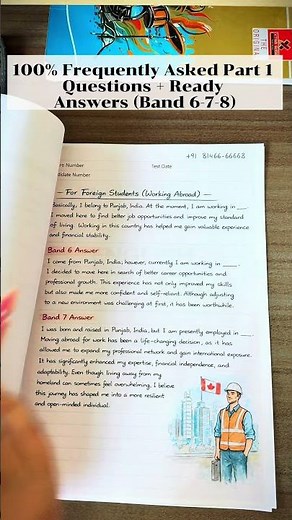 THE
ORIGINAL
100% Frequently Asked Part 1
Questions + Ready
Answers (Band 6-7-8)
+91 81466-66668
Number
Test Date
didate Number
— For Foreign Students (Working Abroad) —
Basically, I belong to Punjab, India. At the moment, I am working in ___.
I moved here to find better job opportunities and improve my standard
of living. Working in this country has helped me gain valuable experience
and financial stability.
Band 6 Answer
I come from Punjab, India; however, currently I am working in ___.
I decided to move here in search of better career opportunities and
professional growth. This experience has not only improved my skills
but also made me more confident and self-reliant. Although adjusting
to a new environment was challenging at first, it has been worthwhile.
Band 7 Answer
I was born and raised in Punjab, India, but I am presently employed in ___.
Moving abroad for work has been a life-changing decision, as it has
allowed me to expand my professional network and gain international exposure.
It has significantly enhanced my expertise, financial independence, and
adaptability. Even though living away from my
homeland can sometimes feel overwhelming, I believe
this journey has shaped me into a more resilient
and open-minded individual.